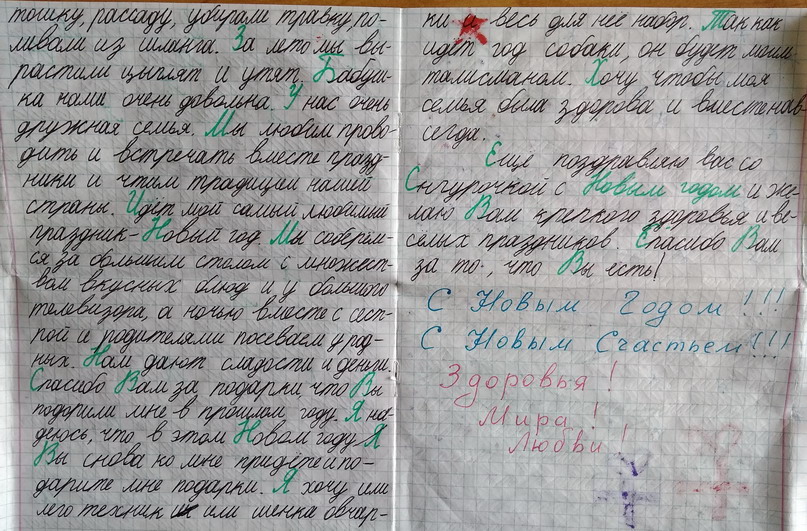 тошку, рассаду, убирали травку, по-
ливали из шланга. За лето мы вы-
растили цыплят и утят. Бабуш-
ка нами очень довольна. У нас очень
дружная семья. Мы любим прово-
дить и встречать вместе празд-
ники и чтим традиции нашей
страны. Идёт мой самый любимый
праздник - Новый год. Мы соберём-
ся за большим столом с множест-
вом вкусных блюд и у большого
телевизора, а ночью вместе с сест-
рой и родителями посеваем у род-
ных. Нам дают сладости и деньги.
Спасибо Вам за подарки, что Вы
подарили мне в прошлом году. Я на-
деюсь, что в этом Новом году Я
Вы снова ко мне придете и по-
дарите мне подарки. Я хочу, или
лего техник или или щенка овчар-
ки и весь для неё набор. Так как
идёт год собаки, он будет моим
талисманом. Хочу чтобы моя
семья была здорова и вместе нав-
сегда.
Ещё поздравляю вас со
Снегурочкой с Новым годом и же-
лаю Вам крепкого здоровья и ве-
сёлых праздников. Спасибо Вам
за то, что Вы есть!
С Новым Годом!!!
С Новым Счастьем!!!
Здоровья!
Мира!
Любви!